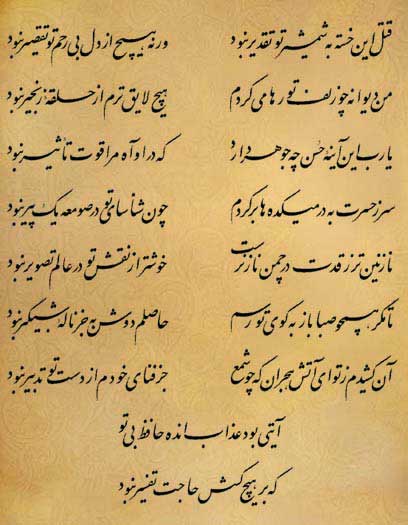 قتل این خسته به شمشیر تو تقدیر نبود ورنه هیچ از دل بی رحم تو تقصیر نبود
من دیوانه چو زلف تو رها می کردم هیچ لایق ترم از حلقه زنجیر نبود
یارب این آینه حسن چه جوهر دارد که در او آه مرا قوت تاثیر نبود
سر ز حسرت به در میکده ها برکردم چون شناسای تو در صومعه یک پیر نبود
نازنین تر ز قدت در چمن ناز نرست خوشتر از نقش تو در عالم تصویر نبود
تا مگر همچو صبا باز به کوی تو رسم حاصلم دوش به جز ناله شبگیر نبود
آن کشیدم ز تو ای آتش هجران که چو شمع جز فنای خودم از دست تو تدبیر نبود
آیتی بود عذاب انده حافظ بی تو
که بر هیچ کسش حاجت تفسیر نبود